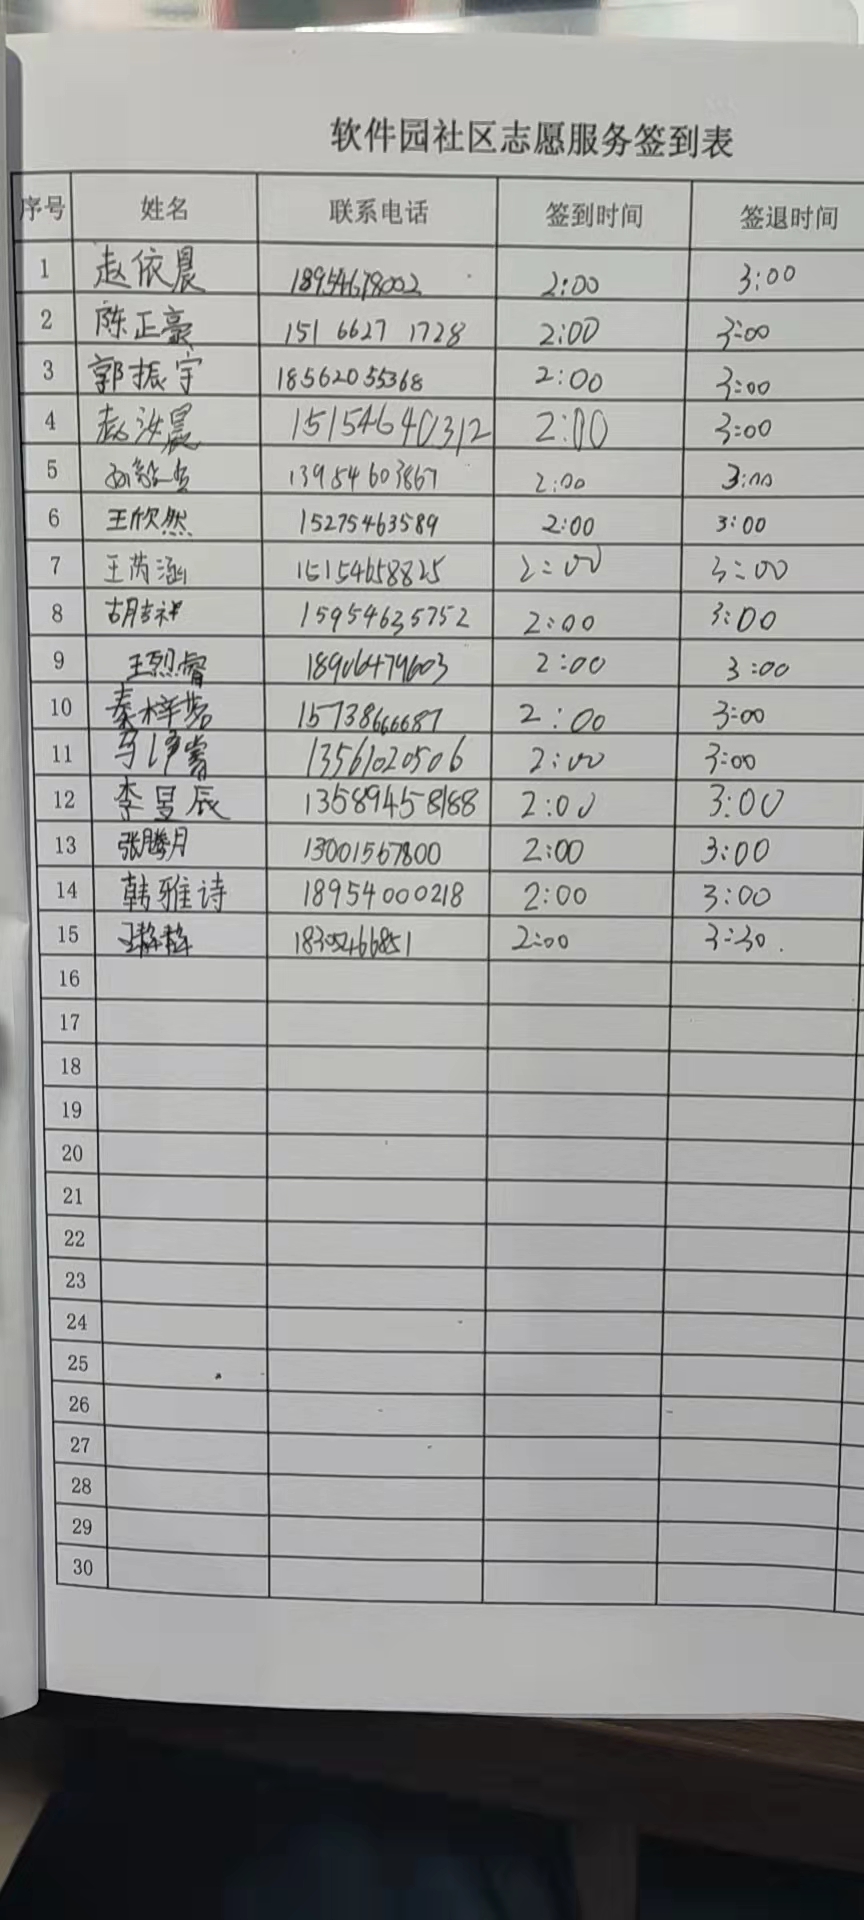 软件园社区志愿服务签到表
序号 姓名 联系电话 签到时间 签退时间
1 赵依晨 18954678002 2:00 3:00
2 陈正豪 151 6627 1728 2:00 3:00
3 郭振宇 18562055368 2:00 3:00
4 赵汝晨 15154640312 2:00 3:00
5 13954603867 2:00 3:00
6 王欣然 15275463589 2:00 3:00
7 王芮涵 15154658825 2:00 3:00
8 胡吉祥 15954635752 2:00 3:00
9 王烈睿 18906479603 2:00 3:00
10 秦梓茗 15738666687 2:00 3:00
11 13561020506 2:00 3:00
12 李昱辰 13589458188 2:00 3:00
13 张腾月 13001567800 2:00 3:00
14 韩雅诗 18954000218 2:00 3:00
15 18305466851 2:00 3:30.
16
17
18
19
20
21
22
23
24
25
26
27
28
29
30